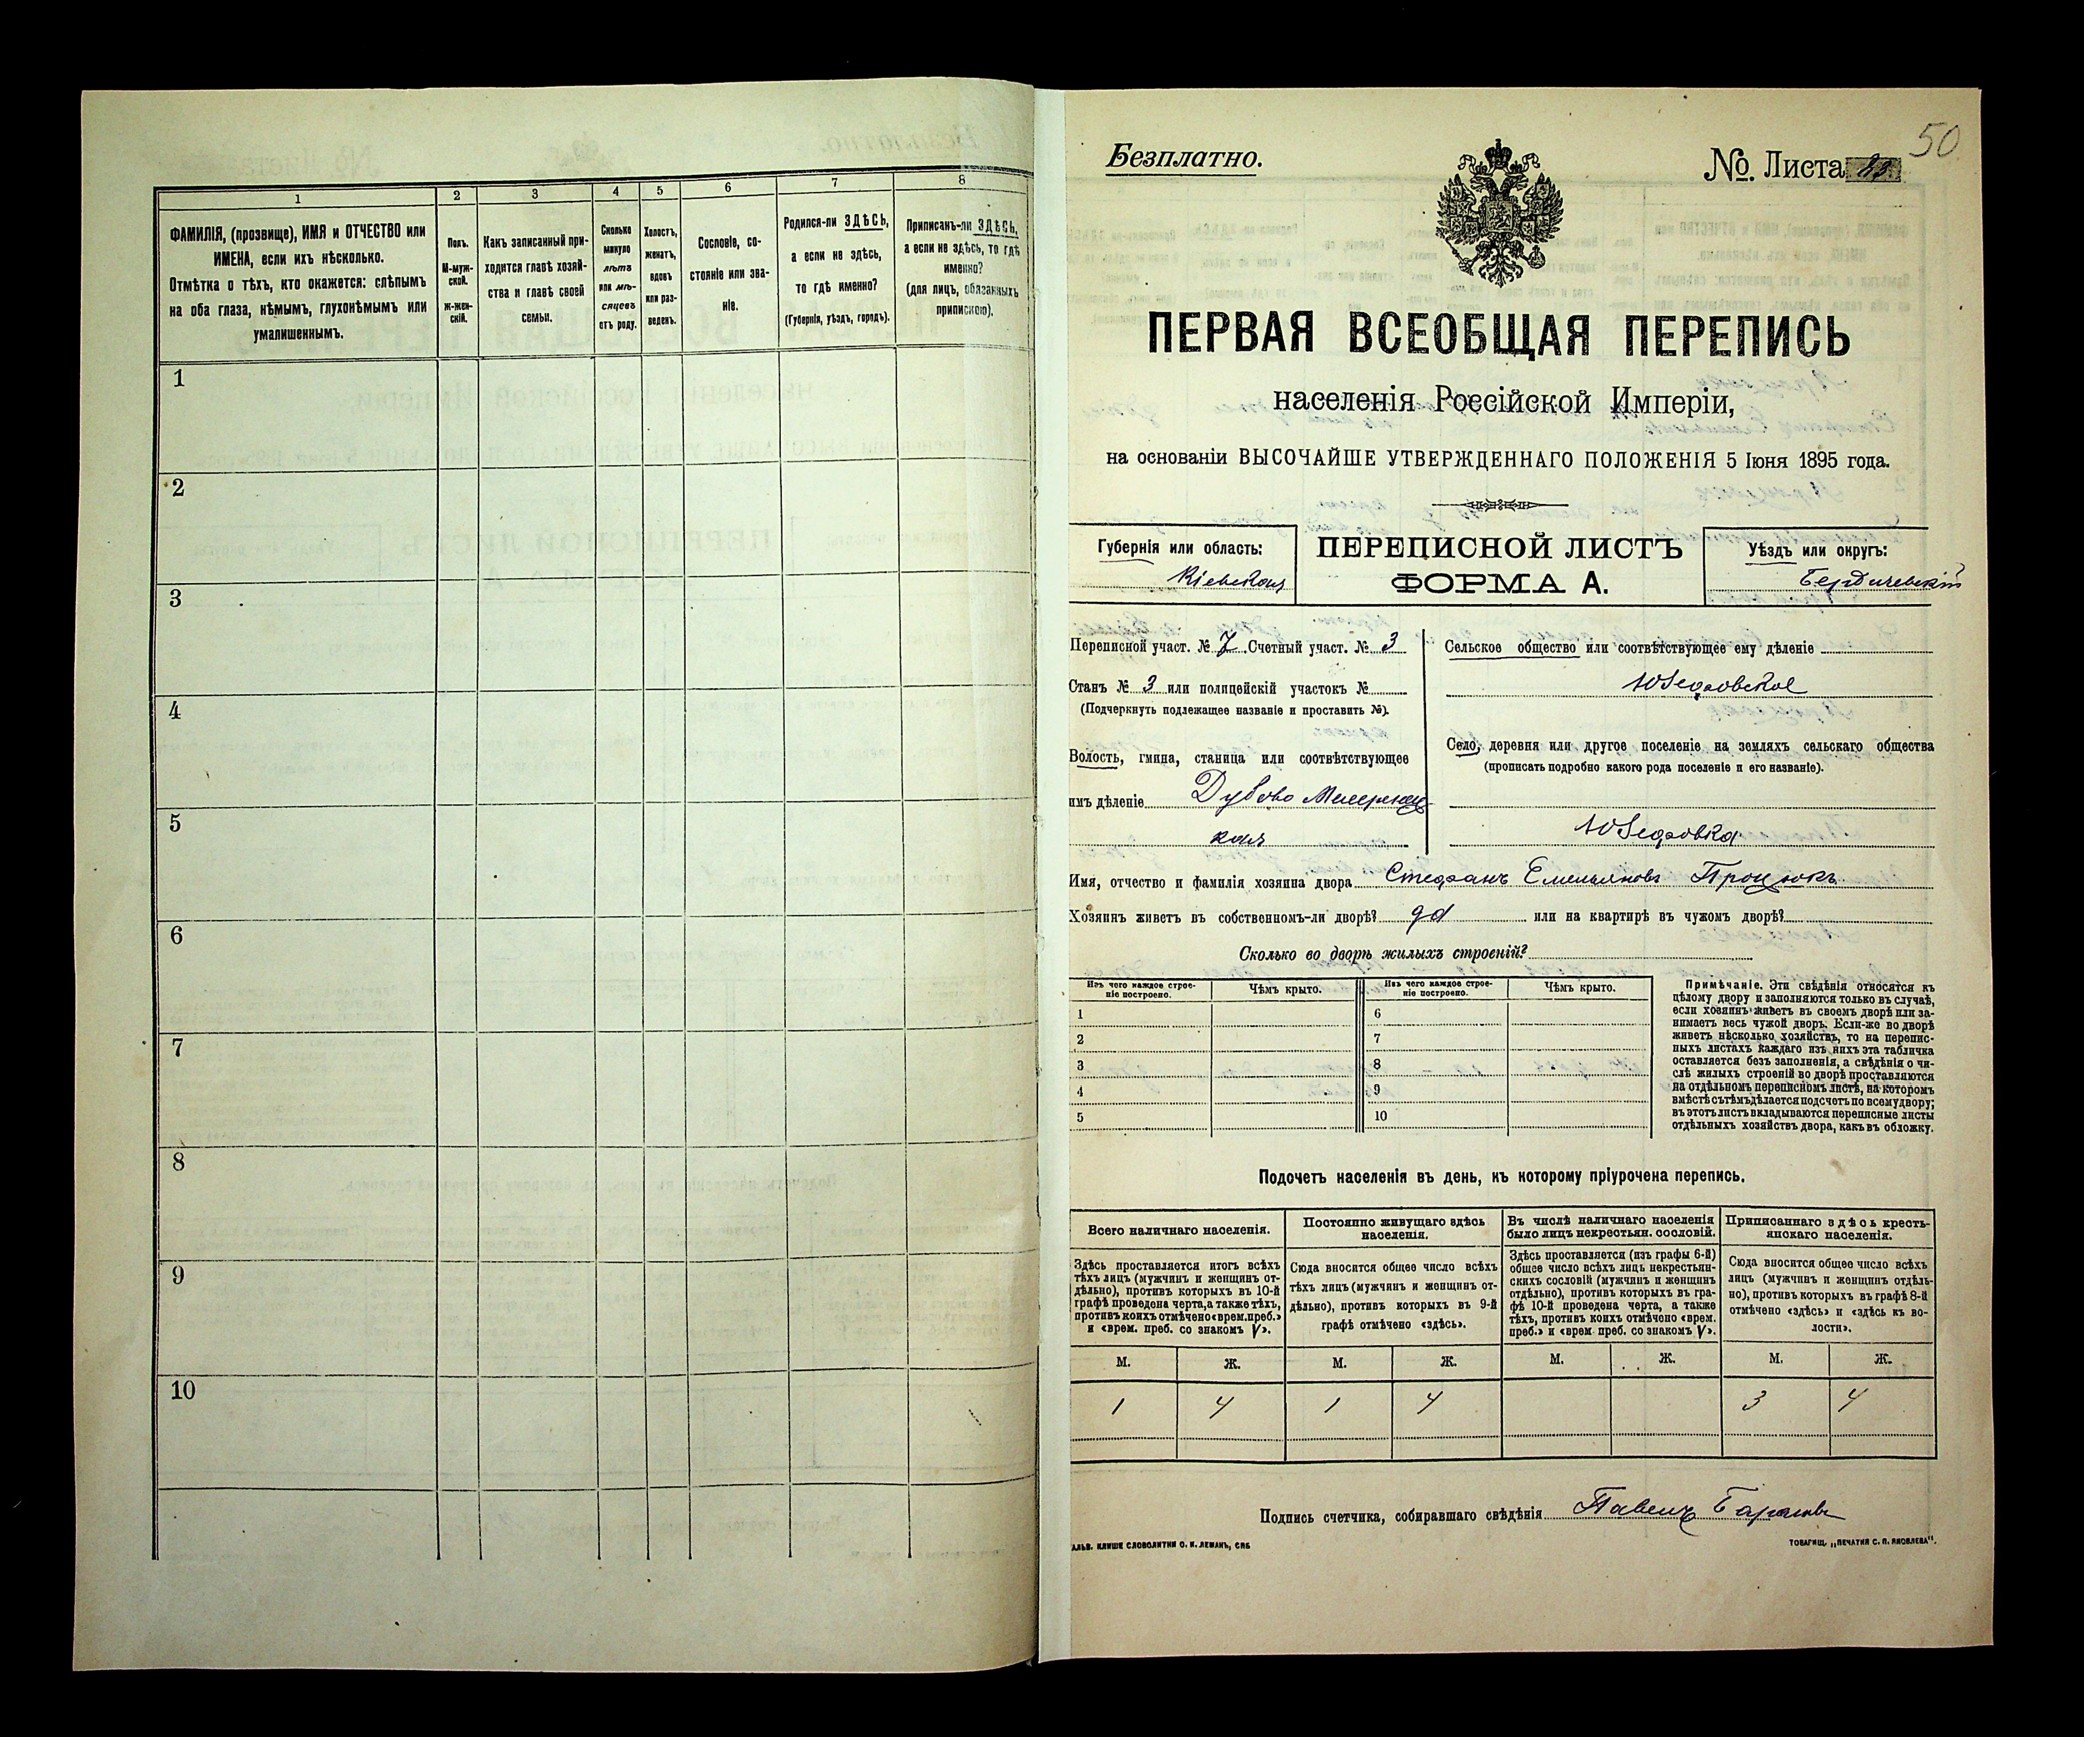 1
2
3
4
5
6
7
8
ФАМИЛІЯ, (прозвище), ИМЯ и ОТЧЕСТВО или
ИМЕНА, если ихъ нѣсколько.
Отмѣтка о тѣхъ, кто окажется: слѣпымъ
на оба глаза, нѣмымъ, глухонѣмымъ или
умалишеннымъ.
Полъ.
М-муж-
ской.
ж-жен-
скій.
Какъ записанный при-
ходится главѣ хозяй-
ства и главѣ своей
семьи.
Сколько
минуло
лѣтъ
или мѣ-
сяцевъ
отъ роду.
Холостъ,
женатъ,
вдовъ
или раз-
веденъ.
Сословіе, со-
стояніе или зва-
ніе.
Родился-ли ЗДѢСЬ,
а если не здѣсь,
то гдѣ именно?
(Губернія, уѣздъ, городъ).
Приписанъ-ли ЗДѢСЬ,
а если не здѣсь, то гдѣ
именно?
(для лицъ, обязанныхъ
припискою).
1
2
3
4
5
6
7
8
9
10
50
Безплатно.
№. Листа
ПЕРВАЯ ВСЕОБЩАЯ ПЕРЕПИСЬ
населенія Россійской Имперіи,
на основаніи ВЫСОЧАЙШЕ УТВЕРЖДЕННАГО ПОЛОЖЕНІЯ 5 Іюня 1895 года.
Губернія или область:
Кіевская
ПЕРЕПИСНОЙ ЛИСТЪ
ФОРМА А.
Уѣздъ или округъ:
Бердичевскій
Переписной участ. № 7 Счетный участ. № 3
Станъ № 3 или полицейскій участокъ №
(Подчеркнуть подлежащее названіе и проставить №).
Волость, гмина, станица или соотвѣтствующее
имъ дѣленіе Дубово Махаринец
кая
Сельское общество или соотвѣтствующее ему дѣленіе
Юзефовское
Село, деревня или другое поселеніе на земляхъ сельскаго общества
(прописать подробно какого рода поселеніе и его названіе).
Юзефовка
Имя, отчество и фамилія хозяина двора Стефанъ Емельяновъ Процюкъ
Хозяинъ живетъ въ собственномъ-ли дворѣ? да или на квартирѣ въ чужомъ дворѣ?
Сколько во дворѣ жилыхъ строеній?
Изъ чего каждое строе-
ніе построено.
Чѣмъ крыто.
Изъ чего каждое строе-
ніе построено.
Чѣмъ крыто.
1
2
3
4
5
6
7
8
9
10
Примѣчаніе. Эти свѣдѣнія относятся къ
цѣлому двору и заполняются только въ случаѣ,
если хозяинъ живетъ въ своемъ дворѣ или за-
нимаетъ весь чужой дворъ. Если-же во дворѣ
живетъ нѣсколько хозяйствъ, то на перепис-
ныхъ листахъ каждаго изъ нихъ эта табличка
оставляется безъ заполненія, а свѣдѣнія о чи-
слѣ жилыхъ строеній во дворѣ проставляются
на отдѣльномъ переписномъ листѣ, на которомъ
вмѣстѣ съ тѣмъ дѣлается подсчетъ по всему двору;
въ этотъ листъ вкладываются переписные листы
отдѣльныхъ хозяйствъ двора, какъ въ обложку.
Подсчетъ населенія въ день, къ которому пріурочена перепись.
Всего наличнаго населенія.
Здѣсь проставляется итогъ всѣхъ
тѣхъ лицъ (мужчинъ и женщинъ от-
дѣльно), противъ которыхъ въ 10-й
графѣ проведена черта, а также тѣхъ,
противъ коихъ отмѣчено «врем. преб.»
и «врем. преб. со знакомъ V».
Постоянно живущаго здѣсь
населенія.
Сюда вносится общее число всѣхъ
тѣхъ лицъ (мужчинъ и женщинъ от-
дѣльно), противъ которыхъ въ 9-й
графѣ отмѣчено «здѣсь».
Въ числѣ наличнаго населенія
было лицъ некрестьян. сословій.
Здѣсь проставляется (изъ графы 6-й)
общее число всѣхъ лицъ некрестьян-
скихъ сословій (мужчинъ и женщинъ
отдѣльно), противъ которыхъ въ гра-
фѣ 10-й проведена черта, а также
тѣхъ, противъ коихъ отмѣчено «врем.
преб.» и «врем преб. со знакомъ V».
Приписаннаго здѣсь кресть-
янскаго населенія.
Сюда вносится общее число всѣхъ
лицъ (мужчинъ и женщинъ отдѣль-
но), противъ которыхъ въ графѣ 8-й
отмѣчено «здѣсь» и «здѣсь къ во-
лости».
М. Ж. М. Ж. М. Ж. М. Ж.
1 4 1 4 3 4
Подпись счетчика, собиравшаго свѣдѣнія Павелъ
ГАЛЬВ. КЛИШЕ СЛОВОЛИТНИ О. И. ЛЕМАНЪ, СПБ
ТОВАРИЩ. „ПЕЧАТНЯ С. П. ЯКОВЛЕВА".